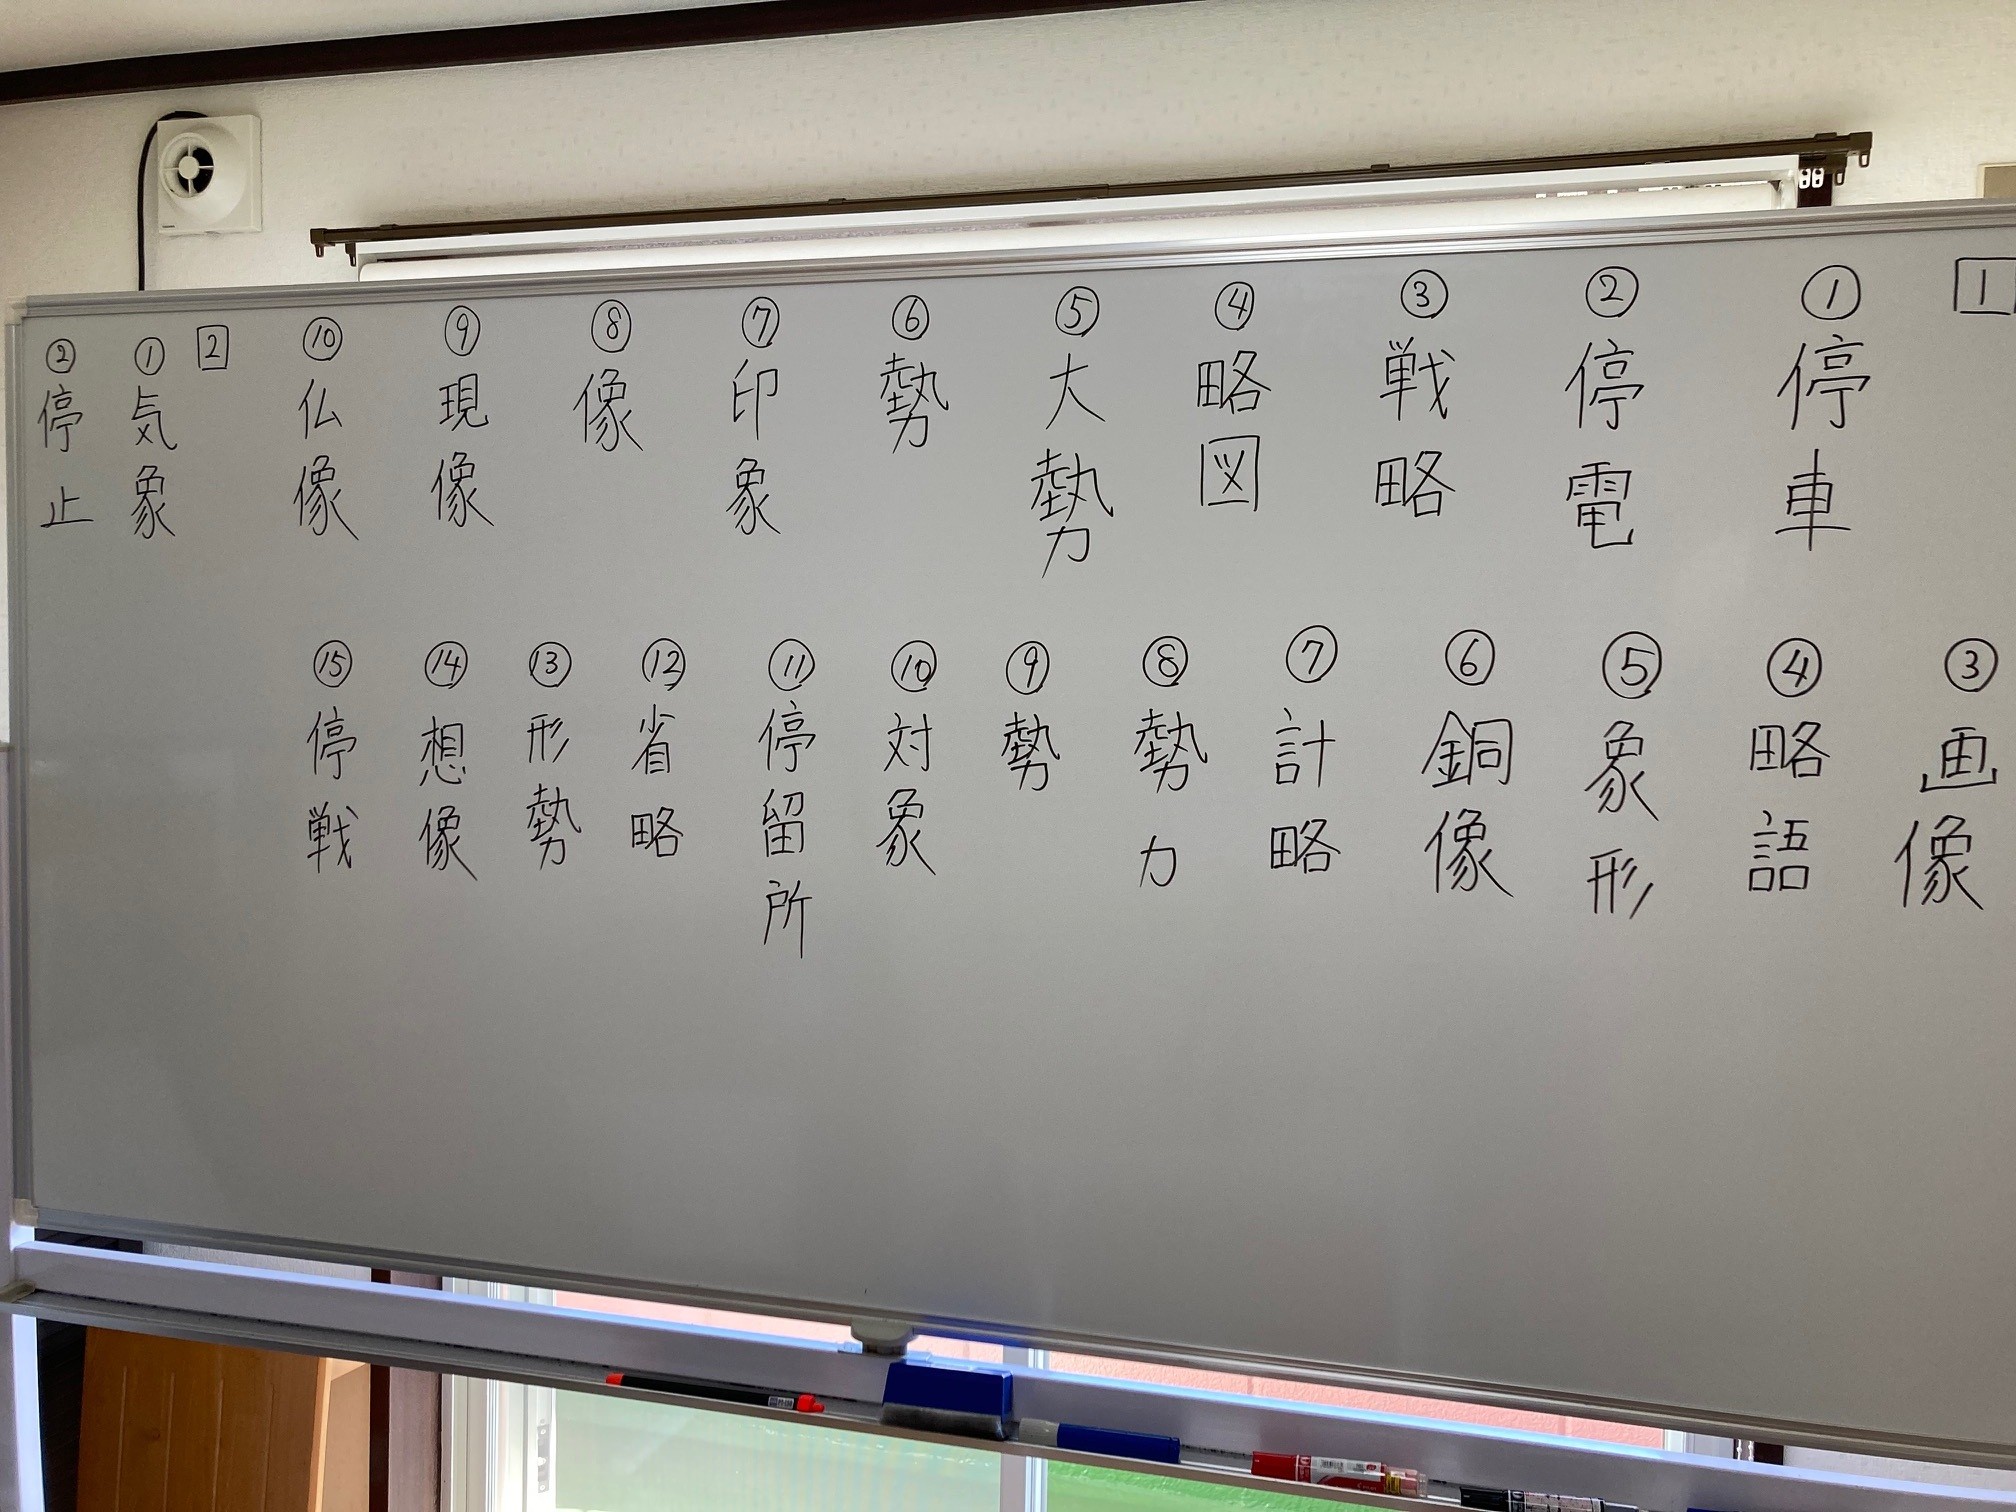 1
①停車
②停電
③戦略
④略図
⑤大勢
⑥勢
⑦印象
⑧像
⑨現像
⑩仏像
2
①気象
②停止
③画像
④略語
⑤象形
⑥銅像
⑦計略
⑧勢力
⑨勢
⑩対象
⑪停留所
⑫省略
⑬形勢
⑭想像
⑮停戦